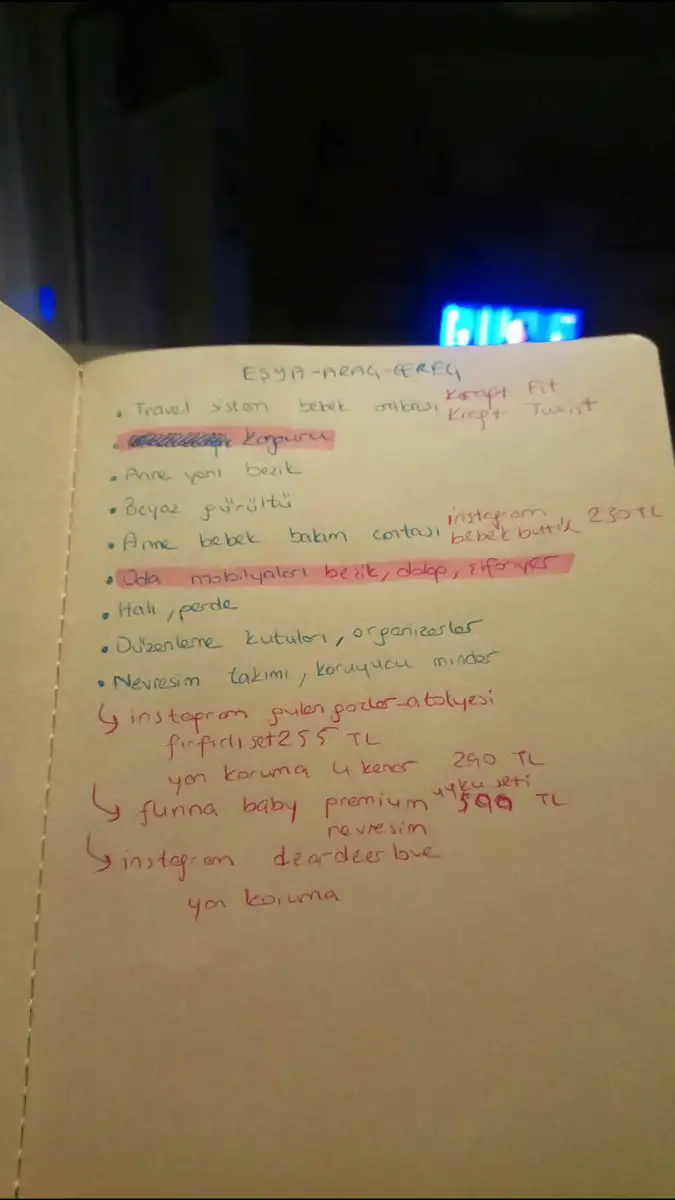 EŞYA-ARAÇ-GEREÇ
• Travel sistem bebek arabası Kraft Fit
Kraft Twist
• Koruyucu
• Anne yanı beşik
• Beyaz gürültü
• Anne bebek bakım çantası instagram
bebek butik 230 TL
• Oda mobilyaları beşik, dolap, şifonyer
• Halı, perde
• Düzenleme kutuları, organizerler
• Nevresim takımı, koruyucu minder
↳ instagram gulen gozler-atolyesi
fırfırlı set 255 TL
yan koruma 4 kenar 290 TL
↳ funna baby premium uyku seti 599 TL
nevresim
↳ instagram deardeerlove
yan koruma